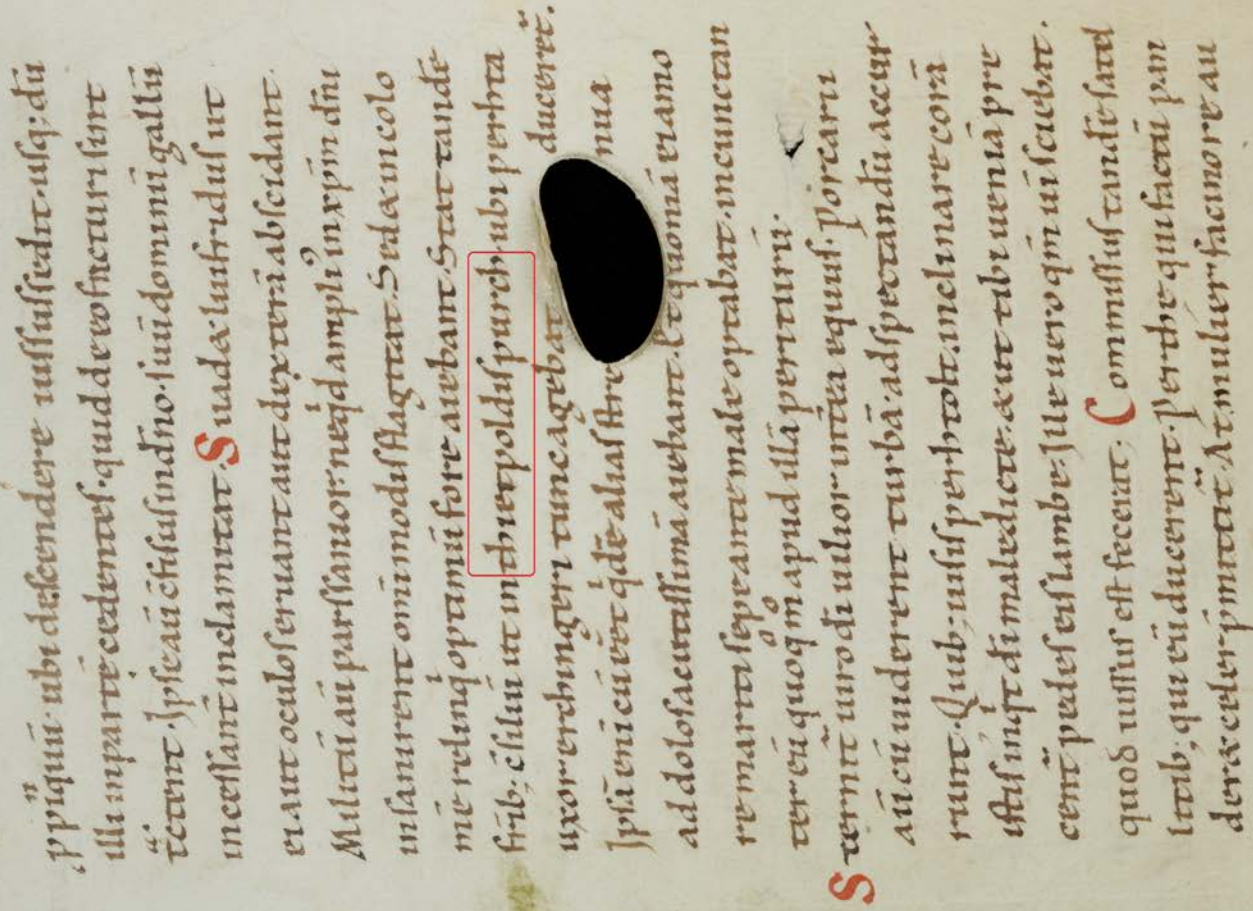 ppiquũ · ubi descendere iussus sedit · usq; dũ
illi inparte cedentes · quid de eo facturi sint
tctent · Ipse aũ indño · sui domini gallũ
incessant inclamitat · Suadet liutfridus ut
ei aut oculos eruant aut dexterã abscidant ·
Militũ aũ pars sanior · neqd ampli9 in xpm dñi
insanirent omnimodis flagitat · Sed & incolo
mẽ optimũ fore aiebant · Stat tandẽ
frib; ut inthietpoldispurch · ubi perhta
uxor erchingeri tunc agebat duceret̃ ·
Ipsã eni cũ qdẽ alias strenua
addolos acutissimã aiebant · Et quoniã etiam o
re mariti sepe ante male optabat · incunctan
ter eũ quoq apud illã periturũ ·
Sternit̃ uiro di uilior intea equus · Porcarii
aũ cũ uiderent turbã · adspectandũ accur
runt · Quib; uisis perhtolt · inclinare corã
istis inqt di maledicte · & ut tibi ueniã pre
cent̃ pedes eis lambe · Ille uero qm
quod iussus est fecerat; Commissus tandẽ satel
litib; qui eũ ducerent · Perthe qui factũ pan
deret celer pmittit̃ · At mulier facinore au